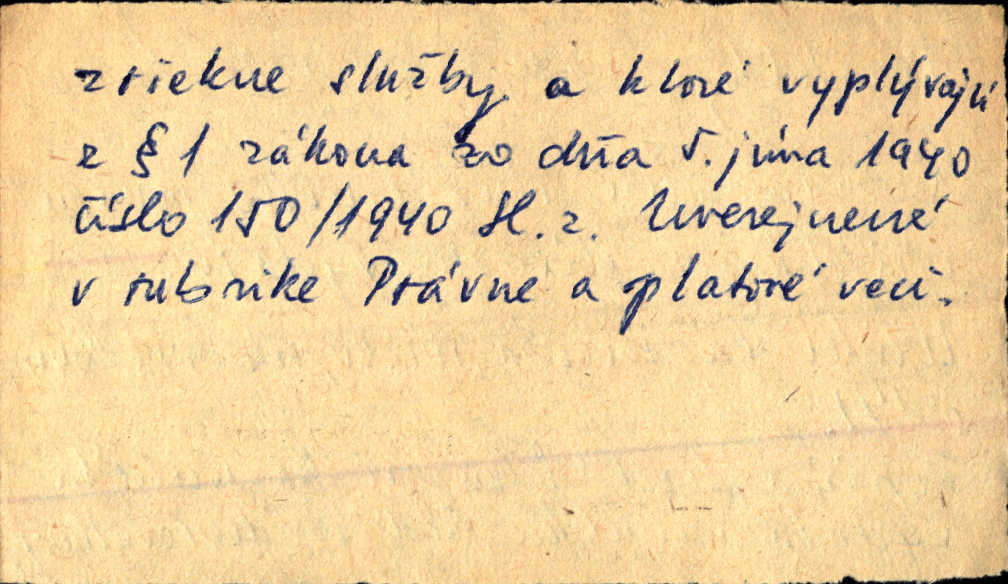 zriekne služby a ktoré vyplývajú
z § 1 zákona zo dňa 5. júna 1940
číslo 150/1940 Sl. z. Uverejnené
v rubrike Právne a platové veci.